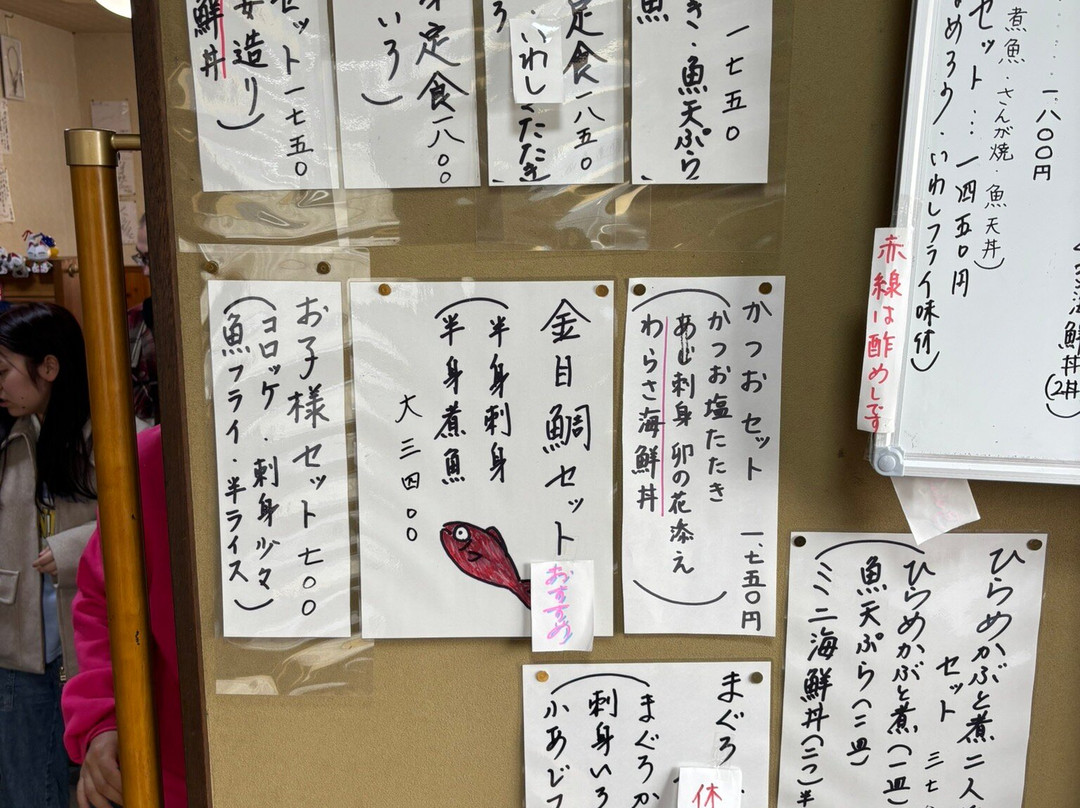 セット一七五〇
造り)
鮮丼
定食一八〇〇
いろ)
定食一八五〇
いわし
たたき
一七五〇
き・魚天ぷら
魚
一、八〇〇円
煮魚・さんが焼・魚天丼)
セット…一四五〇円
なめろう・いわしフライ味付)
海鮮丼(2丼)
赤線は酢めしです
かつおセット 一、七五〇円
(かつお塩たたき
あじ刺身 卯の花添え
わらさ海鮮丼)
金目鯛セット
(半身刺身
半身煮魚)
大三四〇〇
おすすめ
お子様セット七〇〇
(コロッケ・刺身少々
魚フライ・半ライス)
ひらめかぶと煮二人
セット 三七
(ひらめかぶと煮(一皿)
魚天ぷら(二皿)
ミニ海鮮丼(二つ)半
まぐろ
(まぐろか
刺身いろ
小あじフ
休